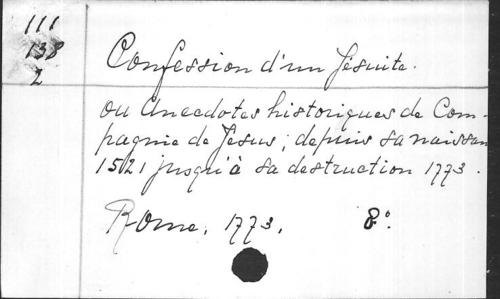 111
138
2
Confession d'un Jésuite.
ou Anecdotes historiques de Com-
pagnie de Jesus; depuis sa naissan
1521 jusqu'à sa destruction 1773.
Rome, 1773. 8°.